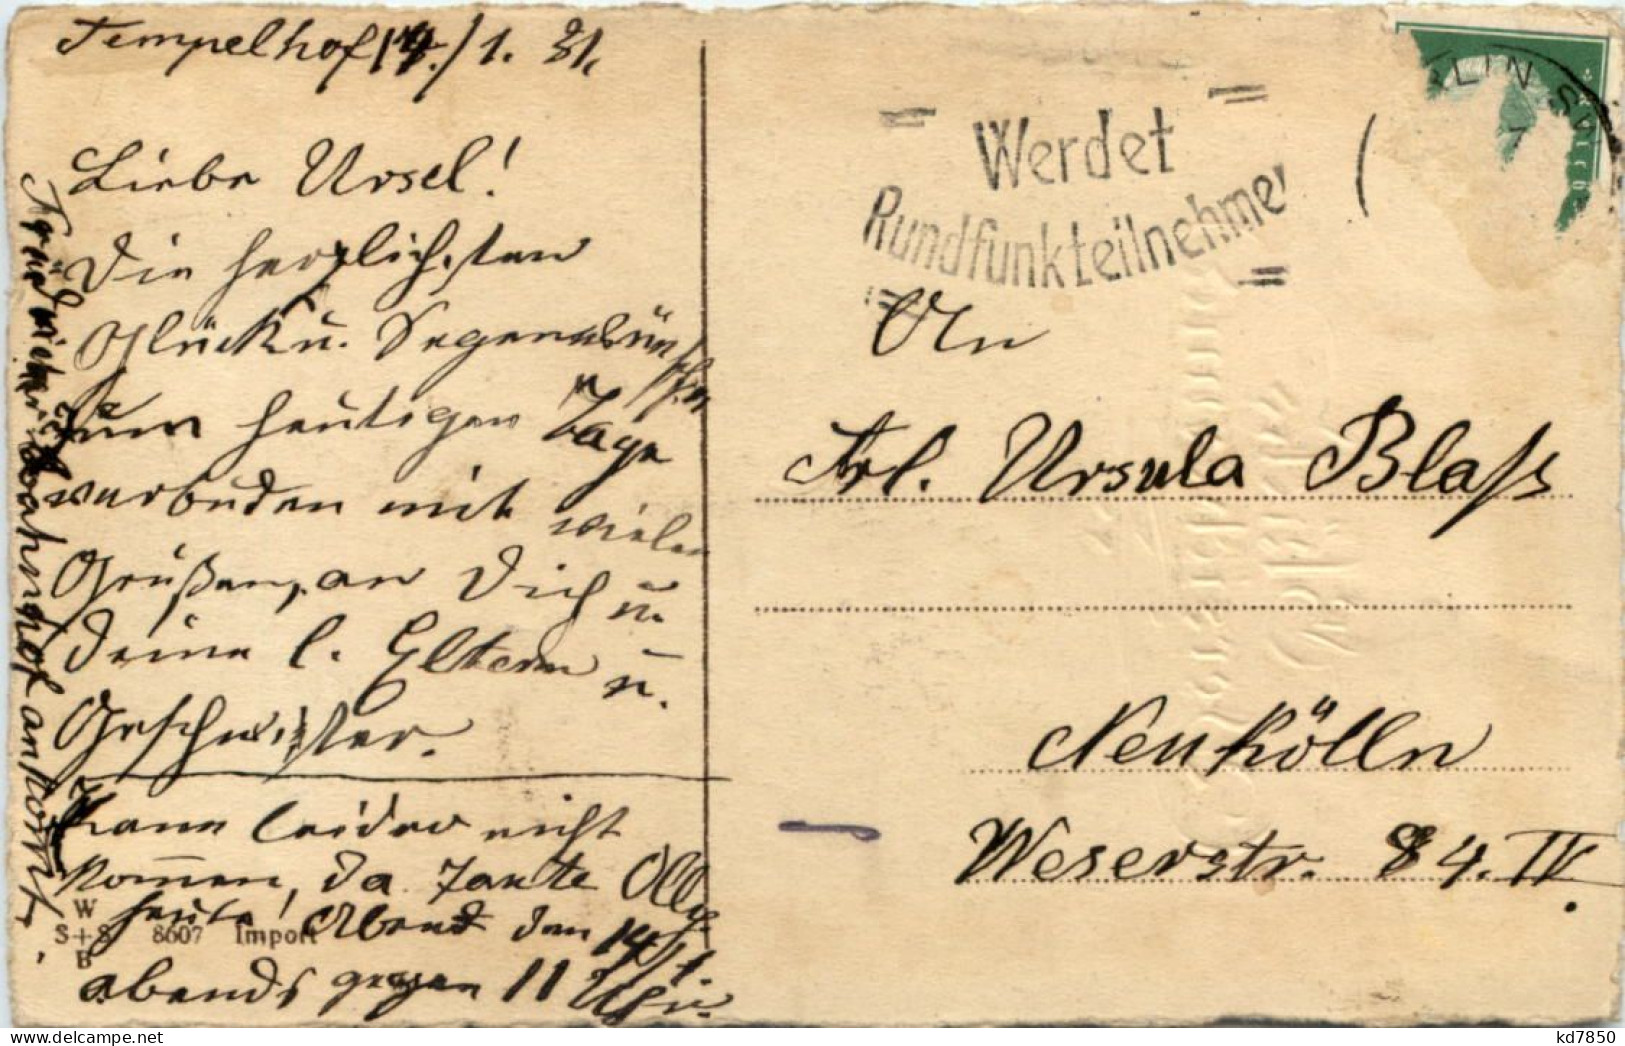 Tempelhof 14./1. 31.
Liebe Ursel!
Die herzlichsten
Glück u. Segenswünschen
zum heutigen Tage
verbuden mit vielen
Grüßen, an Dich u.
Deine l. Eltern u.
Geschwister.
Kann leider nicht
kommen, da Tante Olly
heute! Abend den 14./1.
abends gegen 11 Uhr.
bahnhof ankomt.
W
S+S 8607 Import
B
Werdet
Rundfunkteilnehmer
LIN S
An
Frl. Ursula Blaß
Neukölln
Weserstr. 84. IV.
kd7850